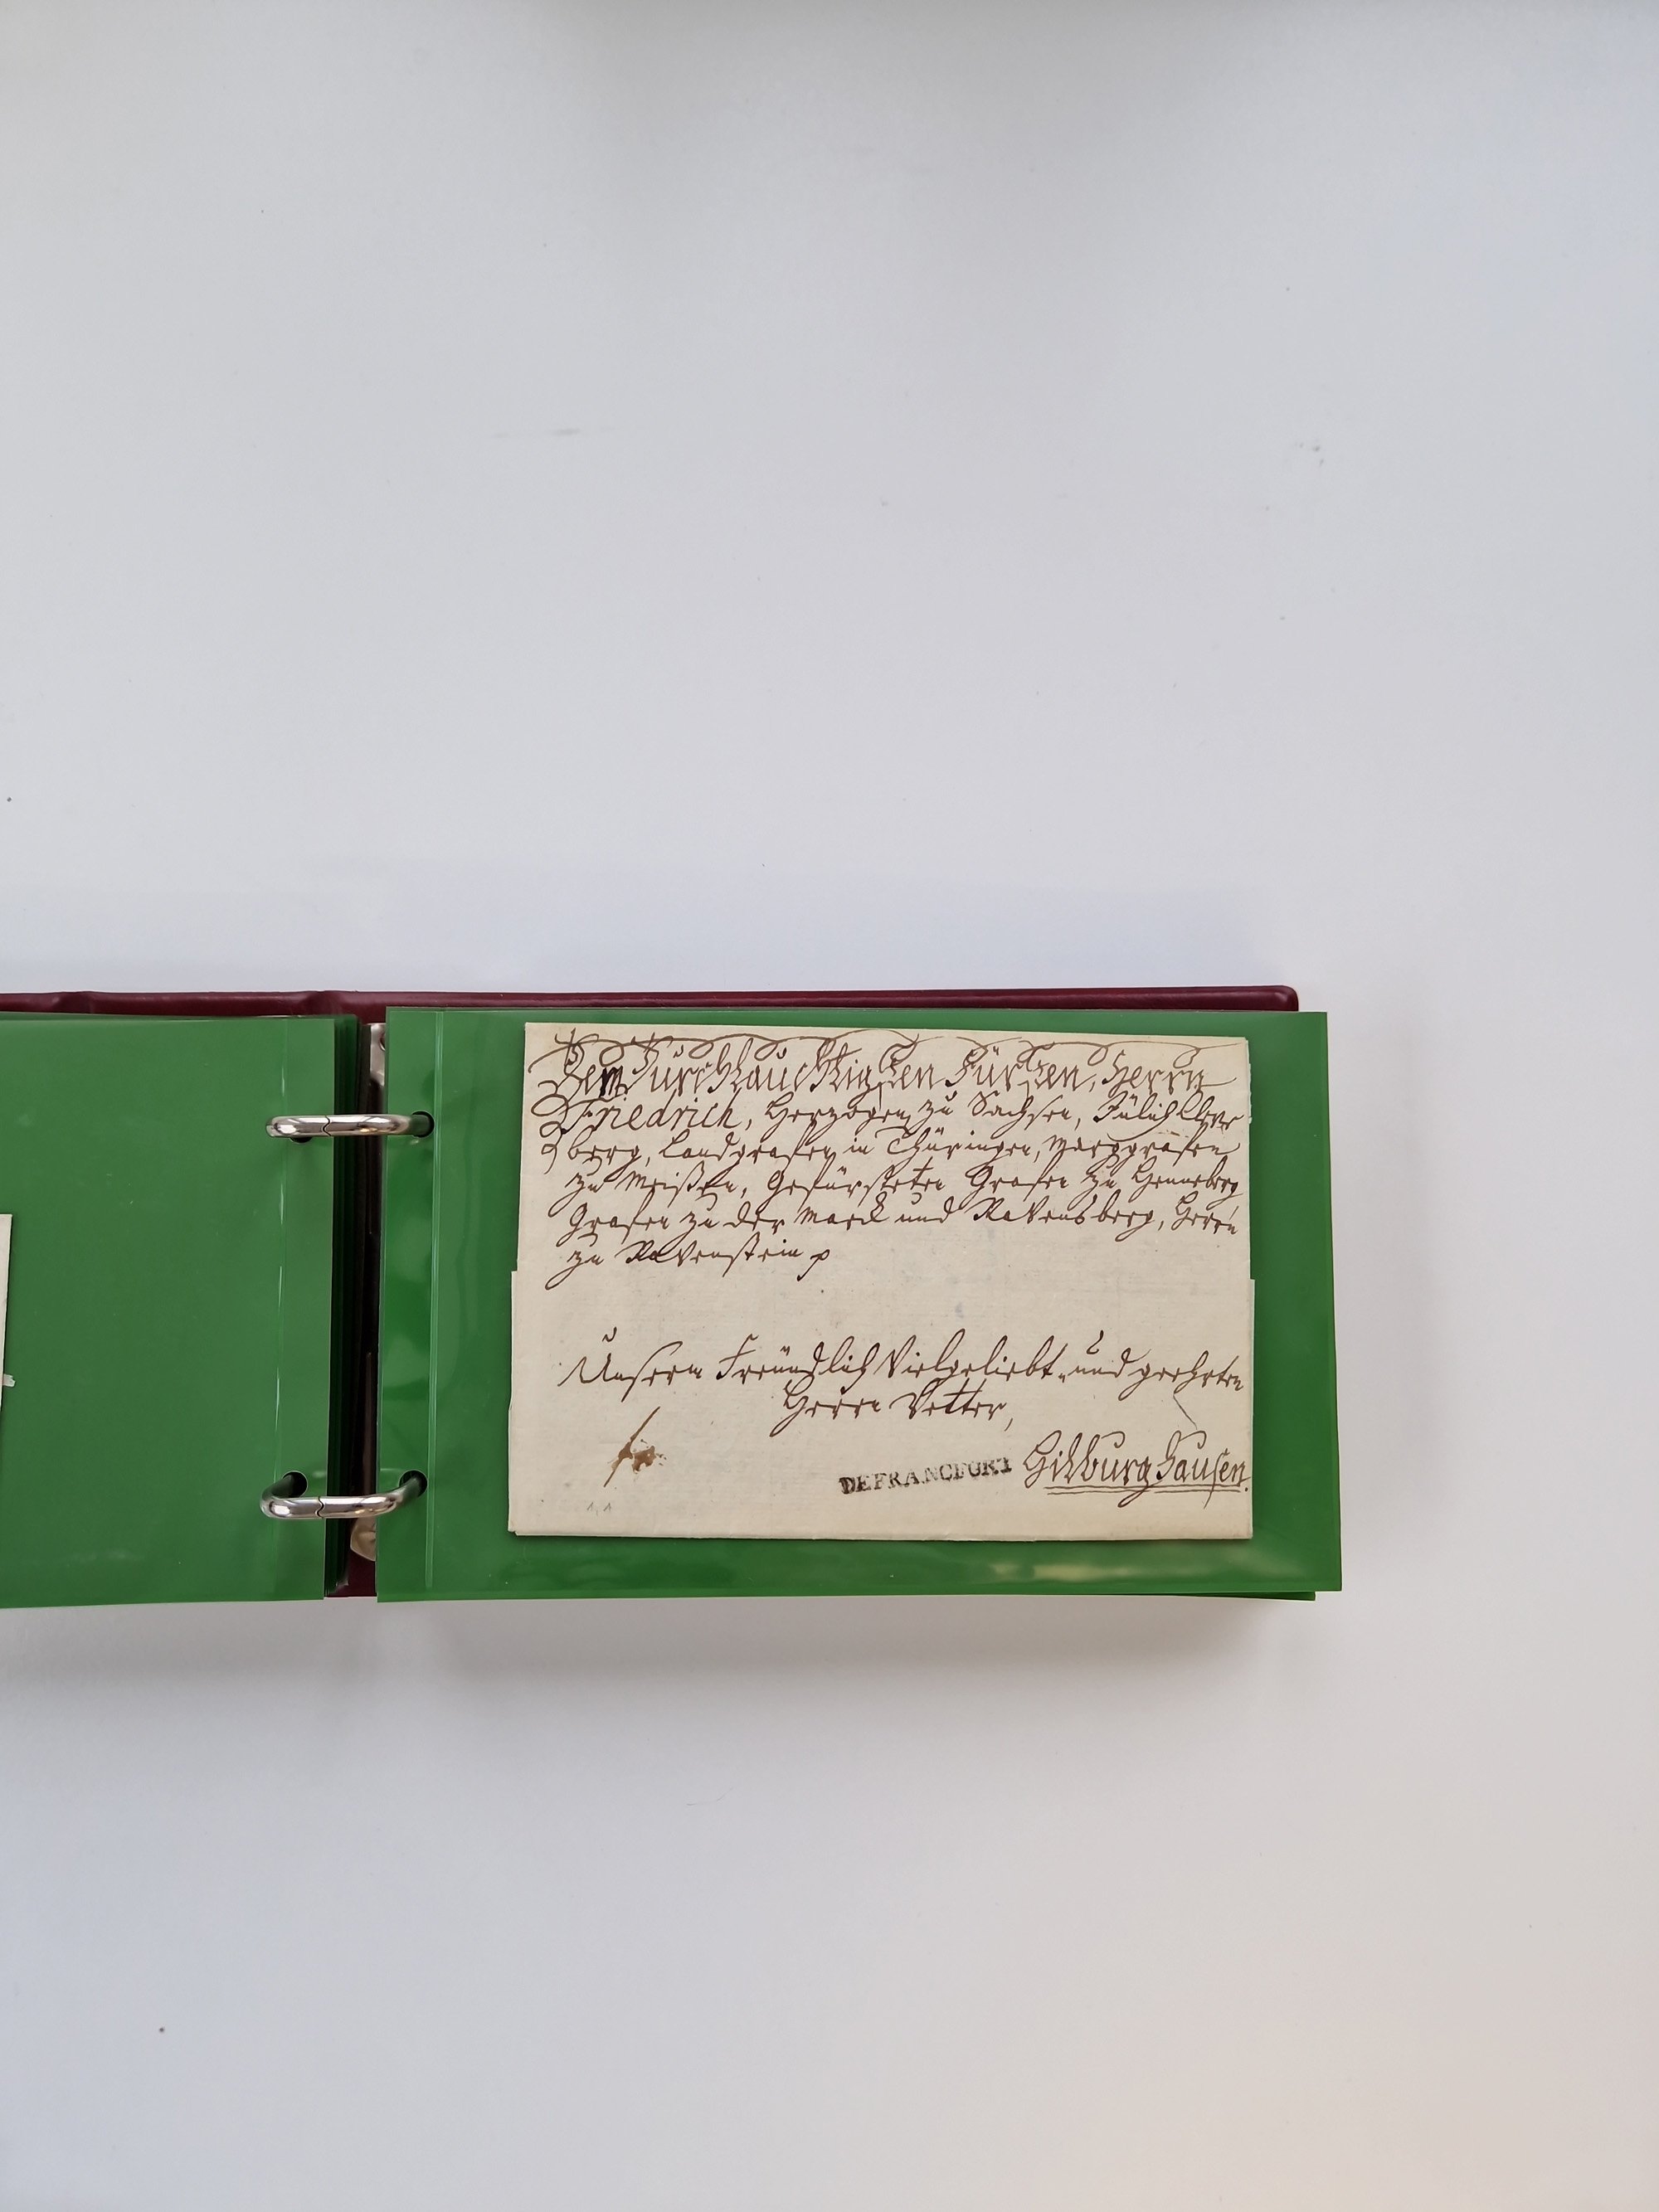 Dem Durchlauchtigsten Fürsten, Herrn
Friedrich, Herzogen zu Sachsen, Jülich Cleve
berg, Landgrafen in Thüringen, Marggrafen
zu Meißen, Gefürsteten Grafen zu Henneberg
Grafen zu der Marck und Ravensberg, Herrn
zu Ravenstein p
Unserm Freündlich Vielgeliebt und geehrten
Herrn Vetter,
DEFRANCFORT Hildburghausen.